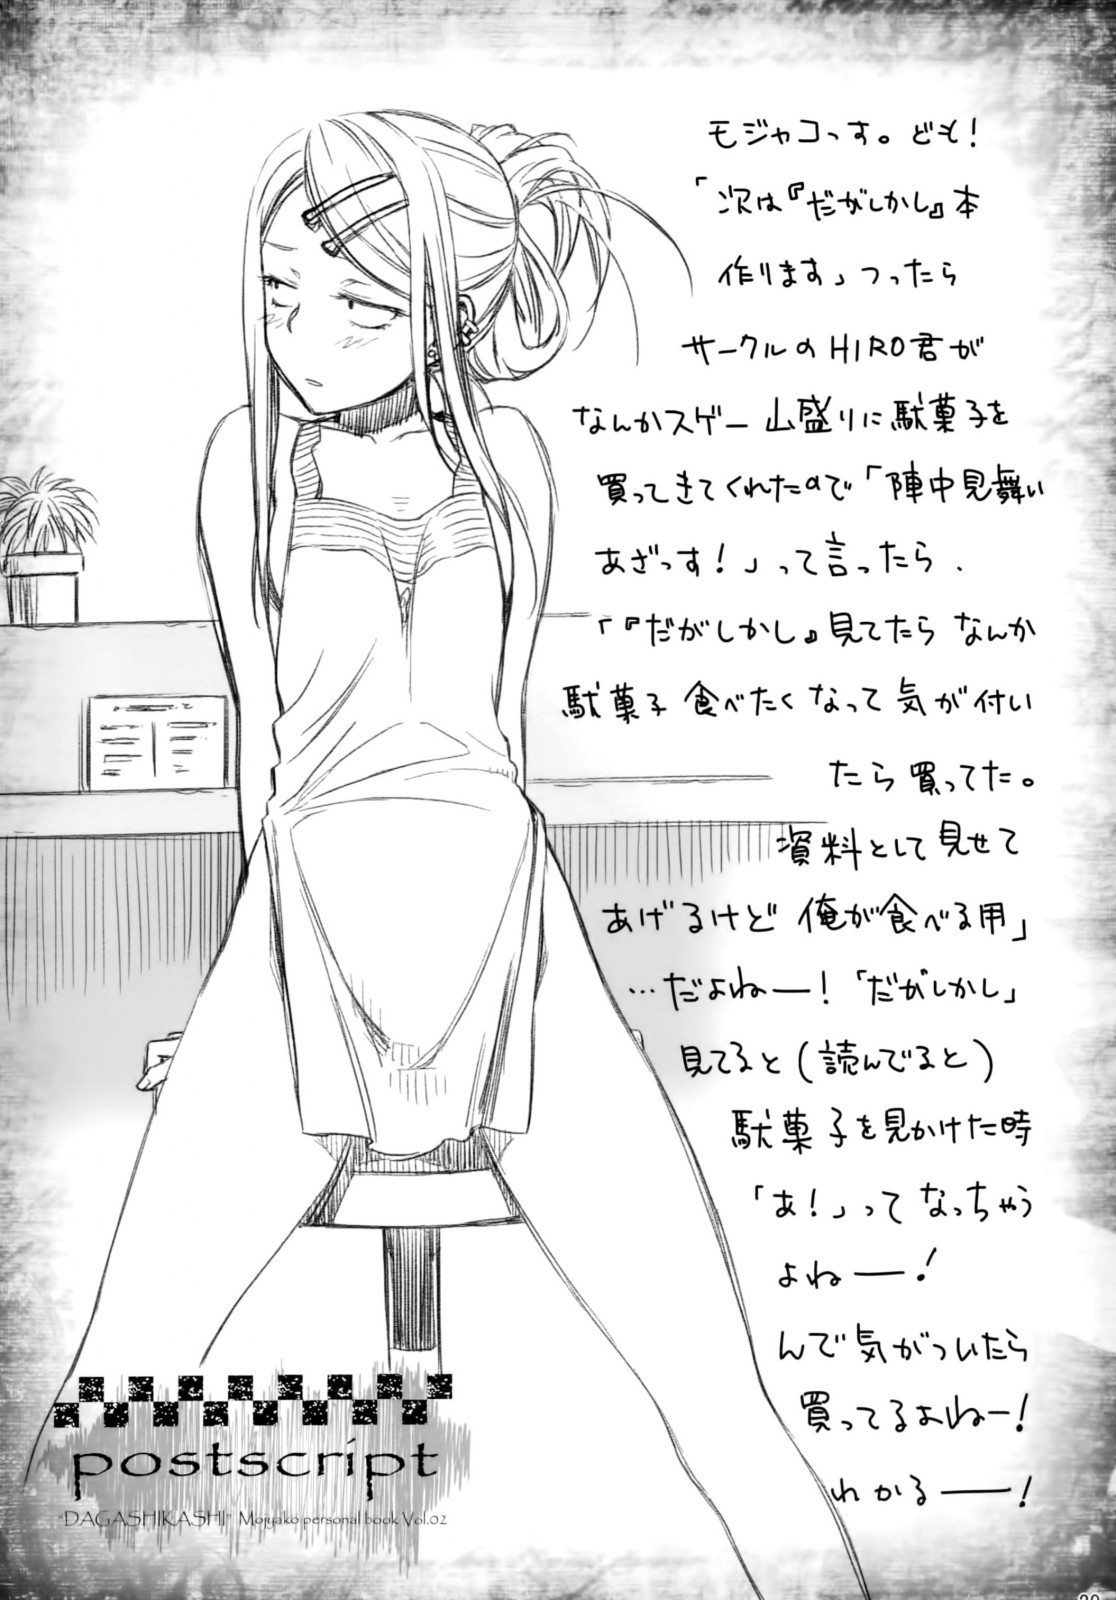 モジャコっす。ども!
「次は『だがしかし』本
作ります」つったら
サークルのHIRO君が
なんかスゲー山盛りに駄菓子を
買ってきてくれたので「陣中見舞い
あざっす!」って言ったら、
「『だがしかし』見てたら なんか
駄菓子 食べたくなって 気が付い
たら 買ってた。
資料として見せて
あげるけど 俺が食べる用」
…だよねー!「だがしかし」
見てると(読んでると)
駄菓子を見かけた時
「あ!」って なっちゃう
よねー!
んで気がついたら
買ってるよねー!
わかるー!
postscript
"DAGASHIKASHI" Mojyako personal book Vol.02